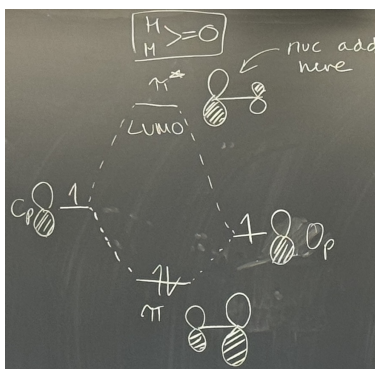 H
H >=O
nuc add
here
π*
LUMO
Cp
Op
π